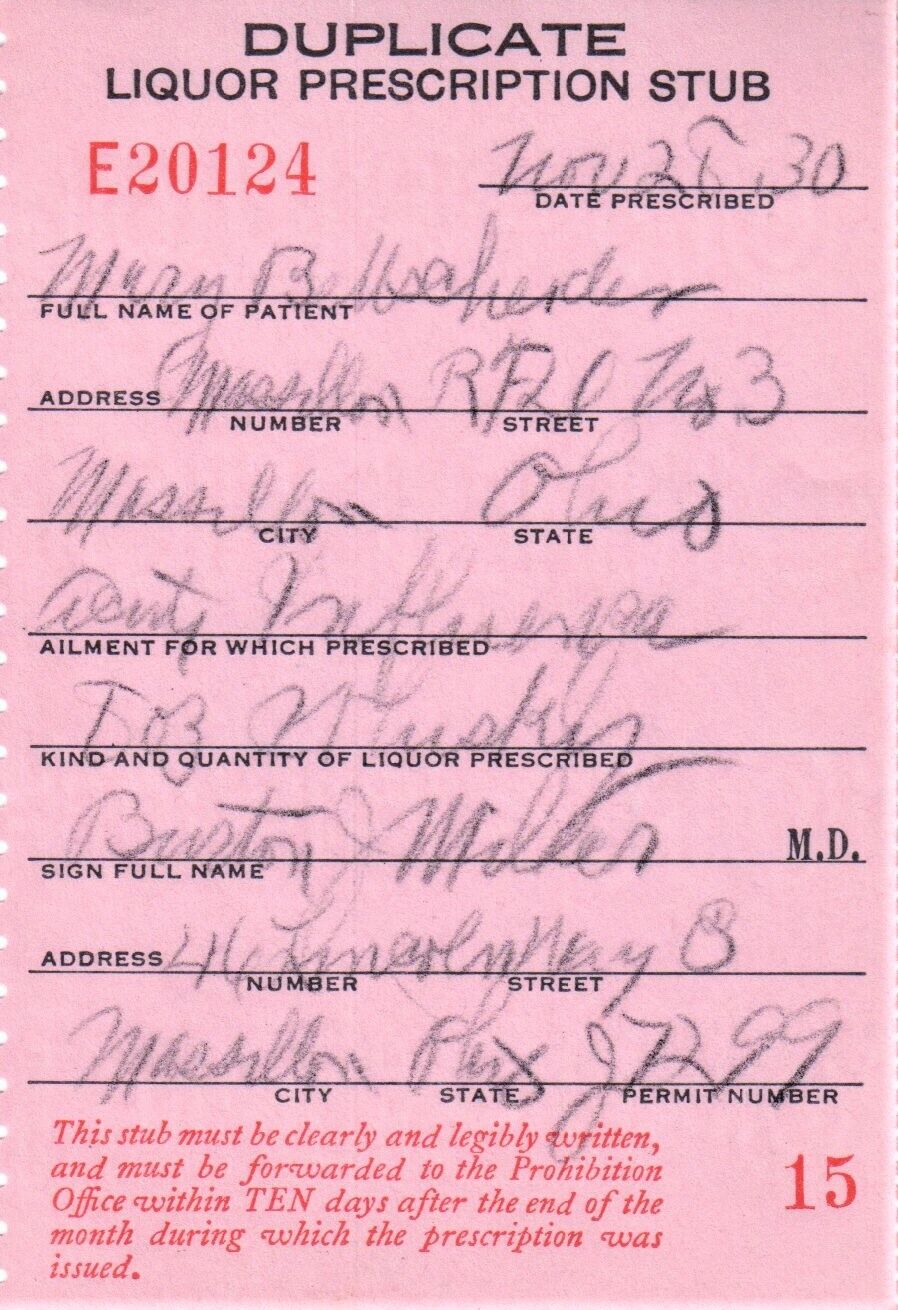 DUPLICATE
LIQUOR PRESCRIPTION STUB
E20124
Nov 28, 30
DATE PRESCRIBED
Mary
FULL NAME OF PATIENT
ADDRESS Massillon No 3
NUMBER STREET
Massillon Ohio
CITY STATE
Influenza
AILMENT FOR WHICH PRESCRIBED
Whisky
KIND AND QUANTITY OF LIQUOR PRESCRIBED
Burton J Miller M.D.
SIGN FULL NAME
ADDRESS LincolnWay
NUMBER STREET
Massillon Ohio
CITY STATE PERMIT NUMBER
This stub must be clearly and legibly written,
and must be forwarded to the Prohibition
Office within TEN days after the end of the
month during which the prescription was
issued.
15